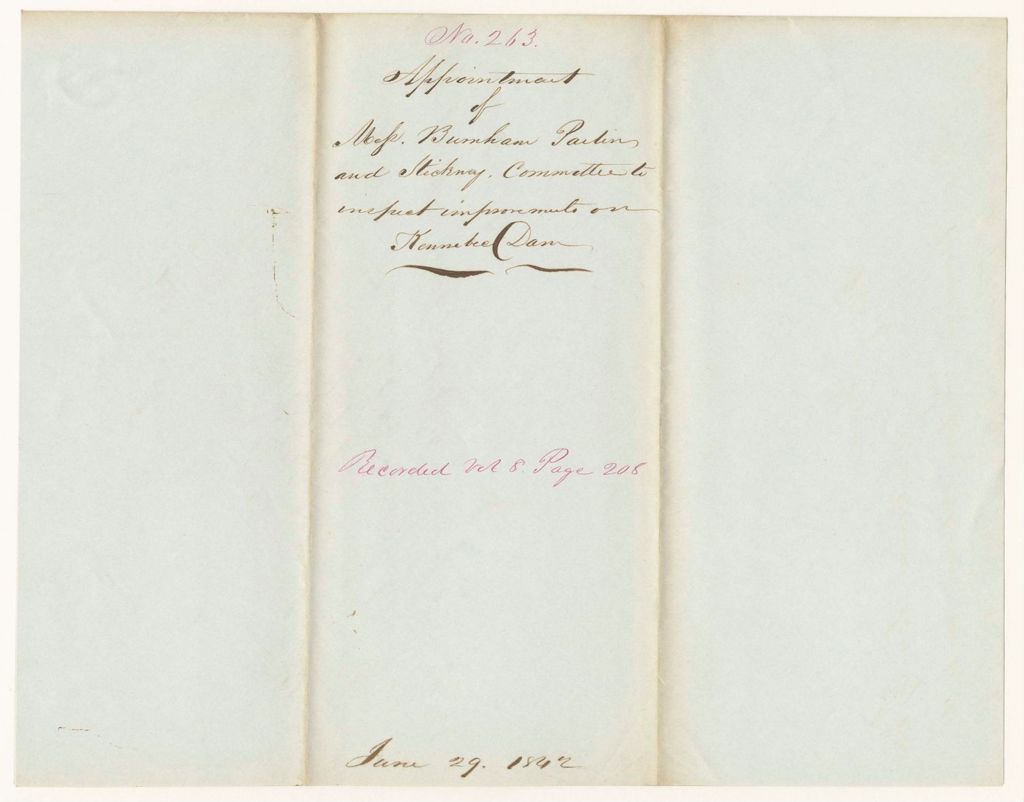 No. 263.
Appointment
of
Mess. Burnham Partin
and Stickney. Committee to
inspect improvements on
Kennebec Dam
Recorded Vol 8. Page 208
June 29. 1842